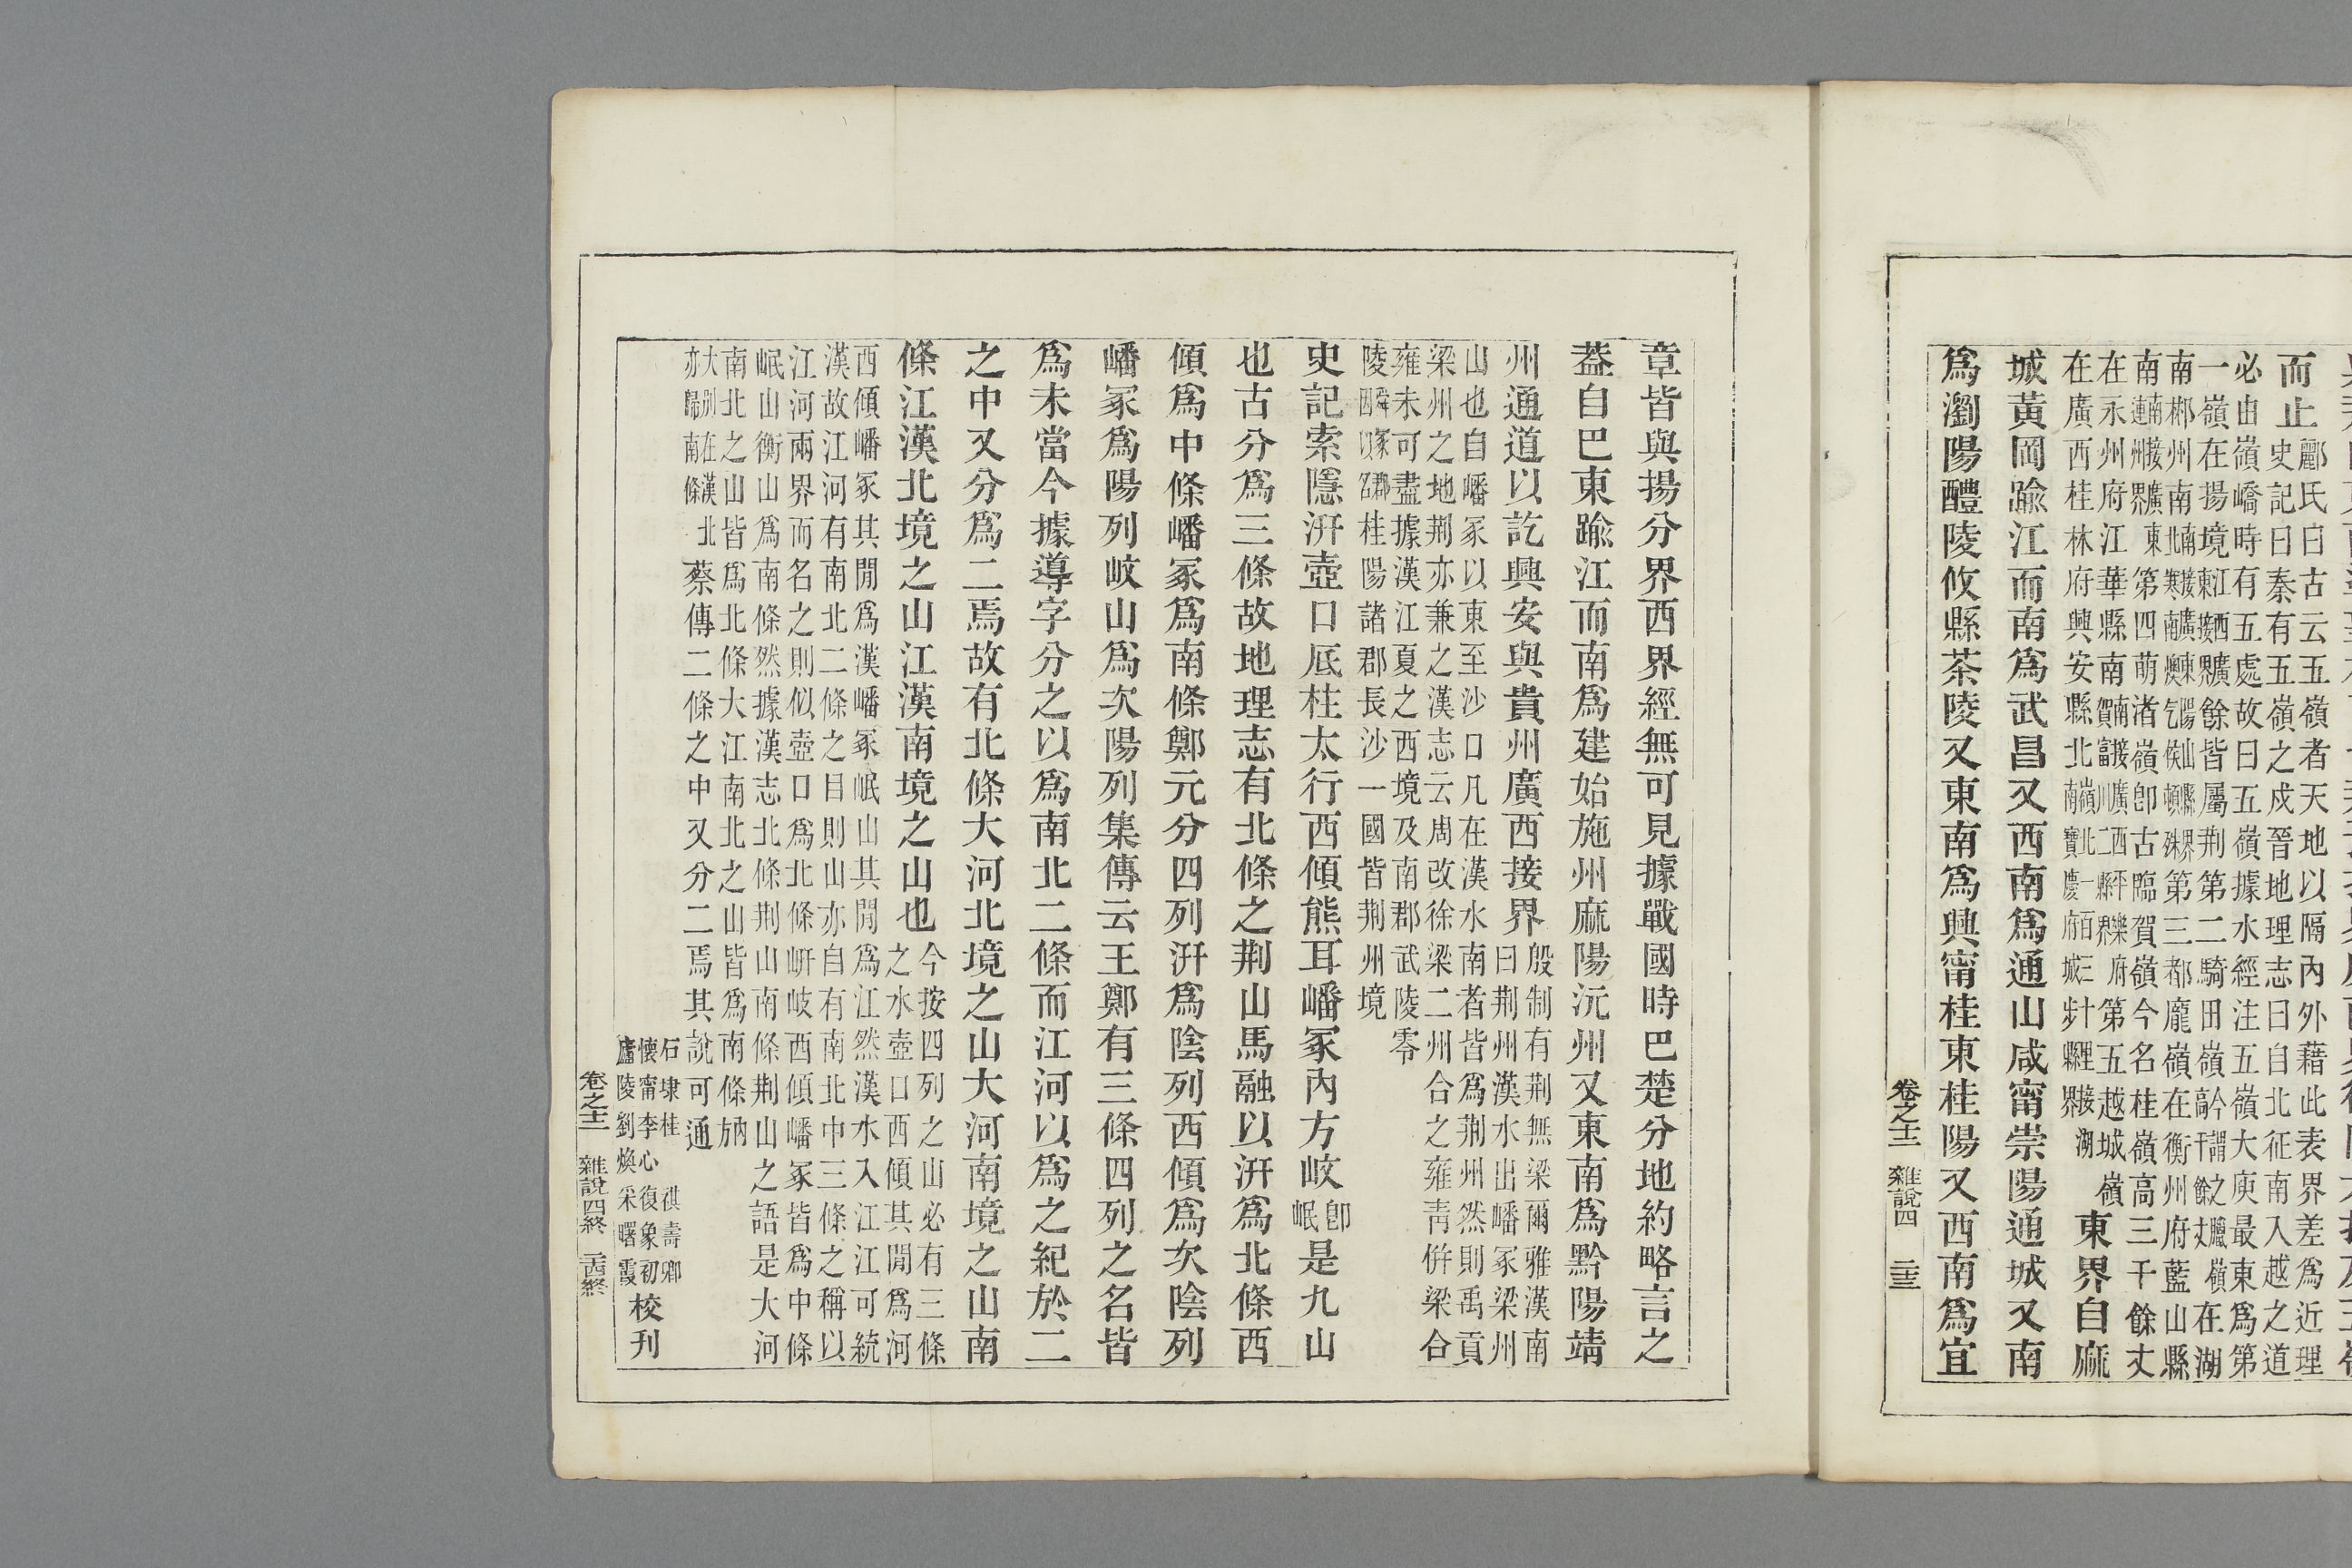 而止
酈氏曰古云五嶺者天地以隔內外藉此表界差爲近理
史記曰秦有五嶺之戍晉地理志曰自北征南入越之道
必由嶺嶠時有五處故曰五嶺據水經注五嶺大庾最東爲第
一嶺在揚境江西廣東接界餘皆屬荆第二騎田嶺今謂之臘嶺高千餘丈在湖
南郴州南南接廣東陽山縣界北寒南燠乞候頓殊第三都龐嶺在衡州府藍山縣
南南接廣東連州界第四萌渚嶺卽古臨賀嶺今名桂嶺高三千餘丈
在永州府江華縣南南接廣西平樂府賀富川二縣界第五越城嶺
在廣西桂林府興安縣北嶺北一百三十里接湖南寶慶府城步縣界
東界自麻
城黃岡踰江而南爲武昌又西南爲通山咸甯崇陽通城又南
爲瀏陽醴陵攸縣茶陵又東南爲興甯桂東桂陽又西南爲宜
卷之十二 雜說四 二十三
章皆與揚分界西界經無可見據戰國時巴楚分地約略言之
葢自巴東踰江而南爲建始施州麻陽沅州又東南爲黔陽靖
州通道以訖興安與貴州廣西接界
殷制有荆無梁爾雅漢南
曰荆州漢水出嶓冢梁州
山也自嶓冢以東至沙口凡在漢水南者皆爲荆州然則禹貢
梁州之地荆亦兼之漢志云周改徐梁二州合之雍靑倂梁合
雍未可盡據漢江夏之西境及南郡武陵零
陵舜冢郡因以名桂陽諸郡長沙一國皆荆州境
史記索隱汧壺口厎柱太行西傾熊耳嶓冢內方岐卽岷是九山
也古分爲三條故地理志有北條之荆山馬融以汧爲北條西
傾爲中條嶓冢爲南條鄭元分四列汧爲陰列西傾爲次陰列
嶓冢爲陽列岐山爲次陽列集傳云王鄭有三條四列之名皆
爲未當今據導字分之以爲南北二條而江河以爲之紀於二
之中又分爲二焉故有北條大河北境之山大河南境之山南
條江漢北境之山江漢南境之山也
今按四列之山必有三條
之水壺口西傾其閒爲河
西傾嶓冢其閒爲漢嶓冢岷山其閒爲江然漢水入江江可統
漢故江河有南北二條之目則山亦自有南北中三條之稱以
江河兩界而名之則似壺口爲北條岍岐西傾嶓冢皆爲中條
岷山衡山爲南條然據漢志北條荆山南條荆山之語是大河
南北之山皆爲北條大江南北之山皆爲南條
大別在漢北亦歸南條蔡傳二條之中又分二焉其說可通
石埭桂 祺壽卿
懷甯李心復象初
廬陵劉煥采曙霞
校刊
卷之十二 雜說四終 二十四終